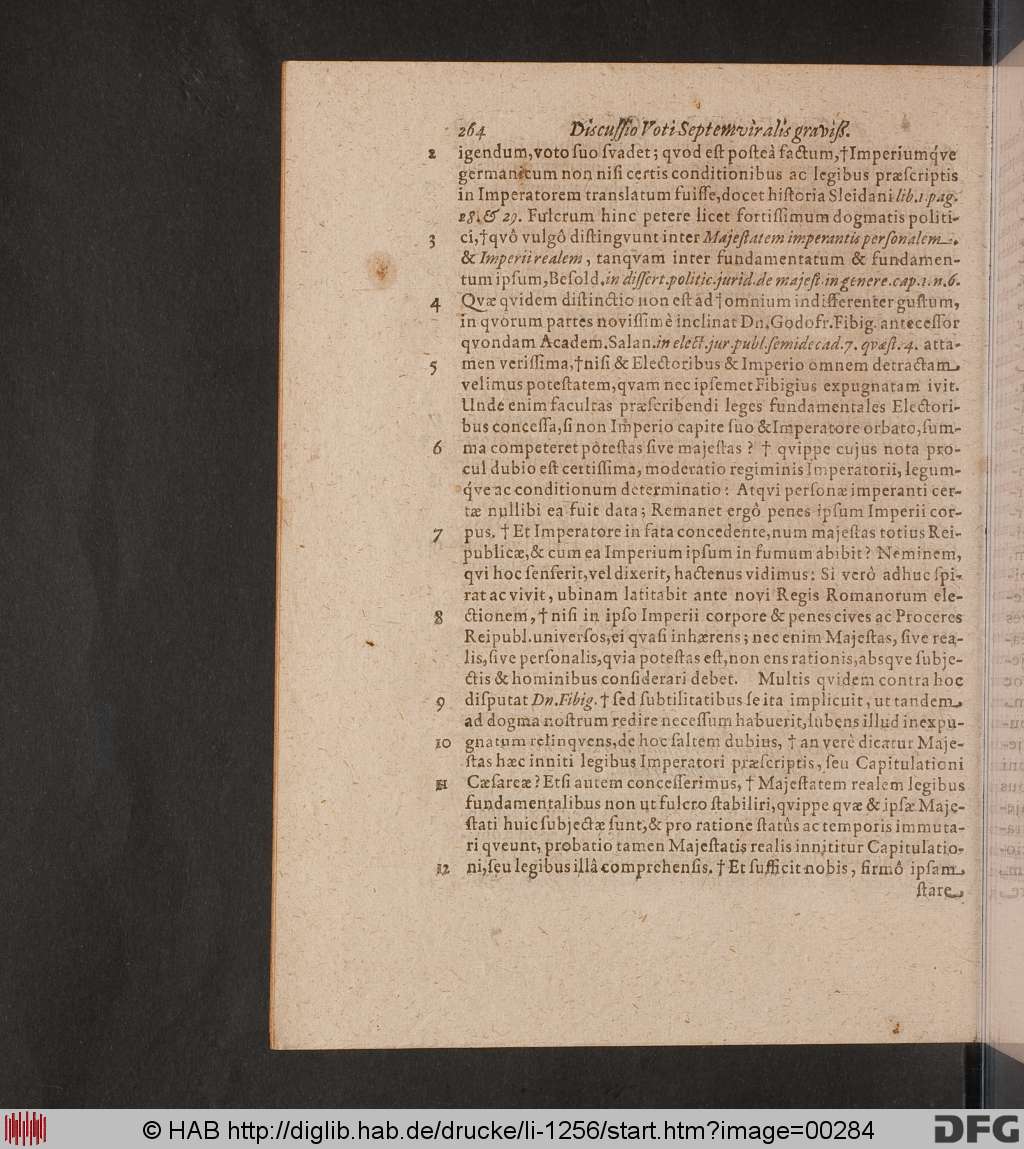 264 Discuſſio Voti Septemviralis graviß.
2 igendum, voto ſuo ſvadet; qvod eſt poſteà factum, † Imperiumq́ve
germanicum non niſi certis conditionibus ac legibus præſcriptis
in Imperatorem translatum fuiſſe, docet hiſtoria Sleidani lib. 1. pag.
28. & 29. Fulcrum hinc petere licet fortiſſimum dogmatis politi-
3 ci, † qvô vulgô diſtingvunt inter Majeſtatem imperantis perſonalem.
& Imperii realem, tanqvam inter fundamentatum & fundamen-
tum ipſum, Beſold. in diſſert. politic. jurid. de majeſt. in genere. cap. 1. n. 6.
4 Qvæ qvidem diſtinctio non eſt ad † omnium indifferenter guſtum,
in qvorum partes noviſſimè inclinat Dn. Godofr. Fibig. anteceſſor
qvondam Academ. Salan. in elect. jur. publ. ſemidecad. 7. qvæſt. 4. atta-
5 men veriſſima, † niſi & Electoribus & Imperio omnem detractam
velimus poteſtatem, qvam nec ipſemet Fibigius expugnatam ivit.
Unde enim facultas præſcribendi leges fundamentales Electori-
bus conceſſa, ſi non Imperio capite ſuo & Imperatore orbato, ſum-
6 ma competeret poteſtas ſive majeſtas? † qvippe cujus nota pro-
cul dubio eſt certiſſima, moderatio regiminis Imperatorii, legum-
q́ve ac conditionum determinatio: Atqvi perſonæ imperanti cer-
tæ nullibi ea fuit data; Remanet ergò penes ipſum Imperii cor-
7 pus. † Et Imperatore in fata concedente, num majeſtas totius Rei-
publicæ, & cum ea Imperium ipſum in fumum abibit? Neminem,
qvi hoc ſenſerit, vel dixerit, hactenus vidimus: Si verò adhuc ſpi-
rat ac vivit, ubinam latitabit ante novi Regis Romanorum ele-
8 ctionem, † niſi in ipſo Imperii corpore & penes cives ac Proceres
Reipubl. univerſos, ei qvaſi inhærens; nec enim Majeſtas, ſive rea-
lis, ſive perſonalis, qvia poteſtas eſt, non ens rationis, absqve ſubje-
ctis & hominibus conſiderari debet. Multis qvidem contra hoc
9 diſputat Dn. Fibig. † ſed ſubtilitatibus ſe ita implicuit, ut tandem
ad dogma noſtrum redire neceſſum habuerit, lubens illud inexpu-
10 gnatum relinqvens, de hoc ſaltem dubius, † an verè dicatur Maje-
ſtas hæc inniti legibus Imperatori præſcriptis, ſeu Capitulationi
11 Cæſareæ? Etſi autem conceſſerimus, † Majeſtatem realem legibus
fundamentalibus non ut fulcro ſtabiliri, qvippe qvæ & ipſæ Maje-
ſtati huic ſubjectæ ſunt, & pro ratione ſtatûs ac temporis immuta-
ri qveunt, probatio tamen Majeſtatis realis innititur Capitulatio-
12 ni, ſeu legibus illâ comprehenſis. † Et ſufficit nobis, firmô ipſam
ſtare
© HAB http://diglib.hab.de/drucke/li-1256/start.htm?image=00284
DFG